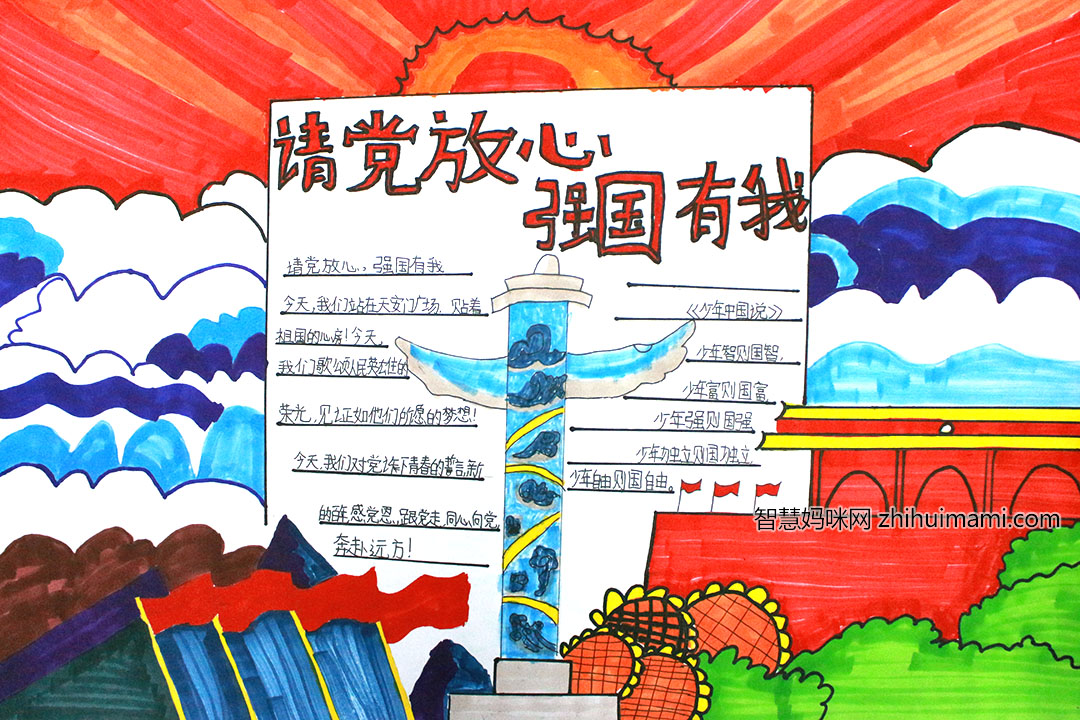 请党放心
强国有我
请党放心，强国有我
今天，我们站在天安门广场，贴着
祖国的心房！今天，
我们歌颂人民英雄的
荣光，见证如他们所愿的梦想！
今天，我们对党许下青春的誓言，新
的 感党恩，跟党走，同心向党，
奔赴远方！
《少年中国说》
少年智则国智，
少年富则国富，
少年强则国强
少年独立则国独立，
少年自由则国自由。
智慧妈咪网 zhihuimami.com